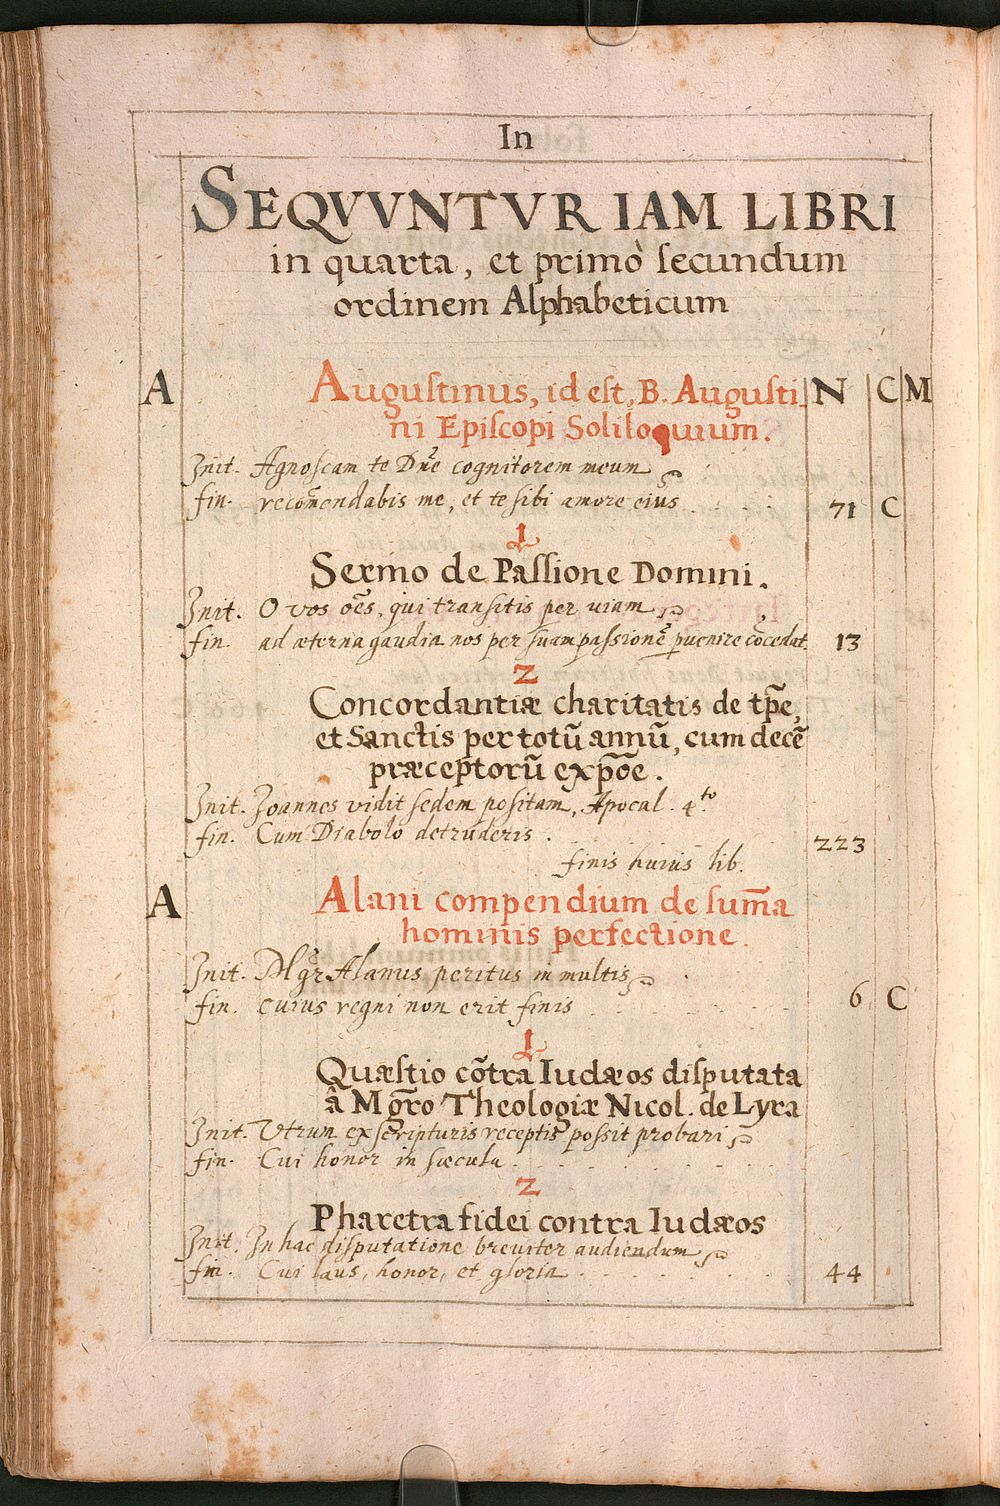 In
SEQVVNTVR IAM LIBRI
in quarta, et primò ſecundum
ordinem Alphabeticum
A Auguſtinus, id eſt, B. Auguſti- N C M
ni Epiſcopi Soliloquium.
Init. Agnoſcam te Dn̄e cognitorem meum
fin. recom̄endabis me, et te ſibi amore eius 71 C
1
Sermo de Paſſione Domini.
Init. O vos oēs, qui tranſitis per uiam
fin. ad æterna gaudia nos per ſuam paſsionē puenire cōcedat. 13
2
Concordantiæ charitatis de tp̄e,
et Sanctis per totū annū, cum decē
præceptorū expōe.
Init. Joannes vidit ſedem poſitam, Apocal. 4.to
fin. Cum Diabolo detruderis. 223
finis huius lib.
A Alani compendium de ſum̄a
hominis perfectione.
Init. Mgr̄ Alanus peritus in multis
fin. cuius regni non erit finis 6 C
1
Quæſtio cōtra Iudæos diſputata
â Mgr̄o Theologiæ Nicol. de Lyra
Init. Vtrum ex ſcripturis receptis poſsit probari
fin. Cui honor in ſæcula.
2
Pharetra fidei contra Iudæos
Init. In hac diſputatione breuiter audiendum
fin. Cui laus, honor, et gloria 44